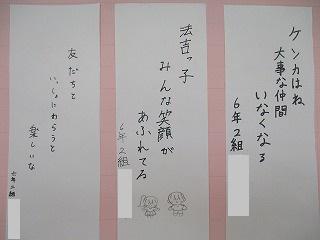 ケンカはね
大事な仲間
いなくなる
6年2組
法吉っ子
みんな笑顔が
あふれてる
6年2組
友だちと
いっしょにわらうと
楽しいな
六年二組